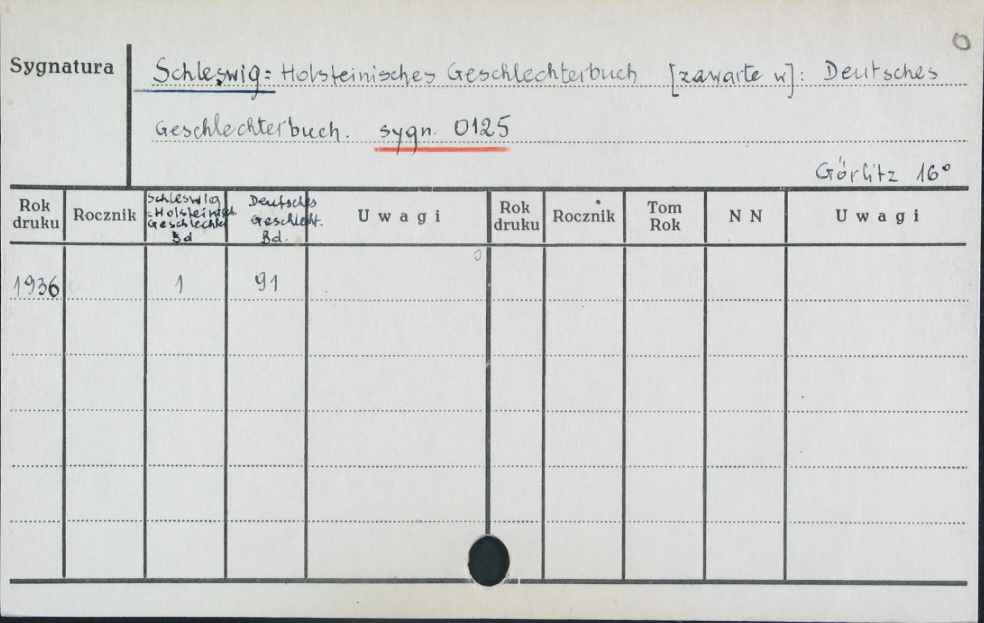 Sygnatura
Schleswig=Holsteinisches Geschlechterbuch [zawarte w]: Deutsches
Geschlechterbuch. sygn. 0125
Görlitz 16°
Rok druku
Rocznik
Schleswig
=Holsteinisch
Geschlechter
Bd
Deutsches
Geschlecht.
Bd.
Uwagi
Rok druku
Rocznik
Tom Rok
NN
Uwagi
1936 1 91